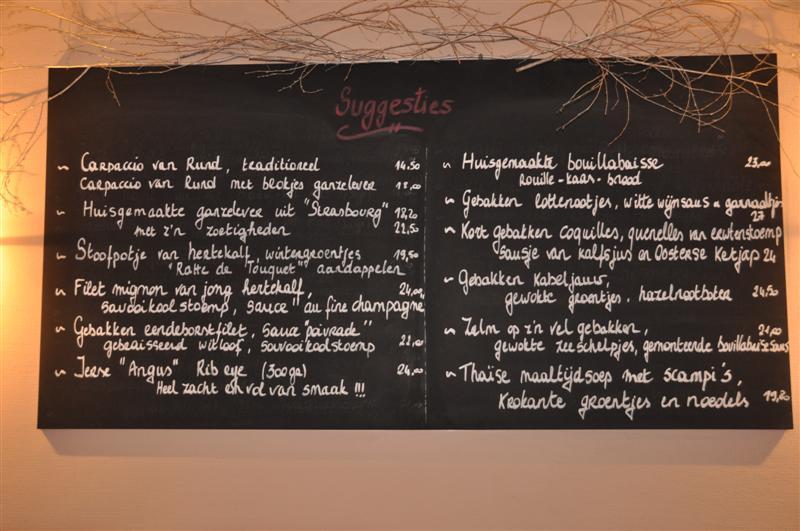 Suggesties
~ Carpaccio van Rund, traditioneel 14,50
Carpaccio van Rund met blokjes ganzelever 18,00
~ Huisgemaakte ganzelever uit "Strasbourg" 18,20
met z'n zoetigheden 21,50
~ Stoofpotje van hertekalf, wintergroentjes 19,50
"Ratte de Touquet" aardappelen
~ Filet mignon van jong hertekalf, 24,00
savooikoolstoemp, sauce "au fine champagne"
~ Gebakken eendeborstfilet, sauce "poivrade"
gebraisseerd witloof, savooikoolstoemp 21,00
~ Ierse "Angus" Rib eye (300gr) 24,00
Heel zacht en vol van smaak !!!
~ Huisgemaakte bouillabaisse 23,00
Rouille - kaas - brood
~ Gebakken lottenootjes, witte wijnsaus
27
~ Kort gebakken coquilles, quenelles van erwtenstoemp
sausje van kalfsjus en Oosterse Ketjap 24
~ Gebakken kabeljauw,
gewokte groentjes, hazelnootboter 24,50
~ Zalm op z'n vel gebakken, 21,00
gewokte zeeschelpjes, gemonteerde bouillabaisse saus
~ Thaïse maaltijdsoep met scampi's,
Krokante groentjes en noedels 19,20